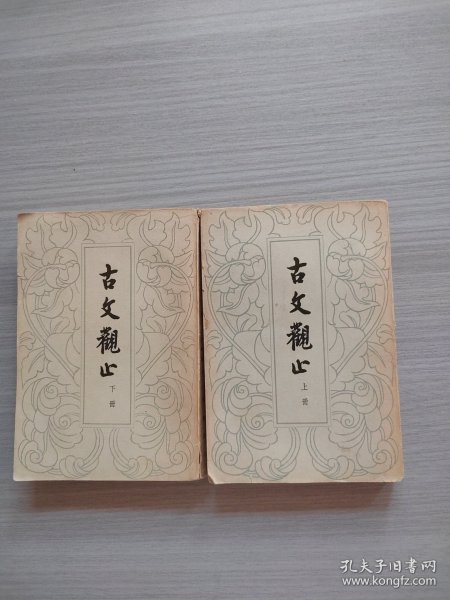 古文觀止
下册
古文觀止
上册
孔夫子旧书网
www.kongfz.com